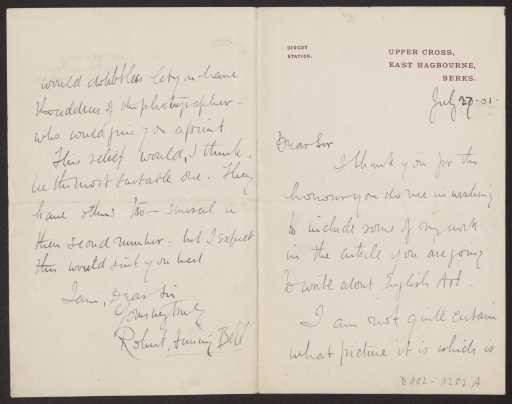 DIDCOT
STATION.
UPPER CROSS,
EAST HAGBOURNE,
BERKS.
July 27-01.
Dear Sir
I thank you for the
honour you do me in wishing
to include some of my work
in the article you are going
to write about English Art.
I am not quite certain
what picture it is which is
D102-1202 A
would doubtless let you have
the address of the photographer -
who would give you a print
This relief would, I think,
be the most suitable one. They
have others too - several in
their second number - but I expect
this would suit you best
I am, Dear Sir
Yours very truly
Robert Anning Bell